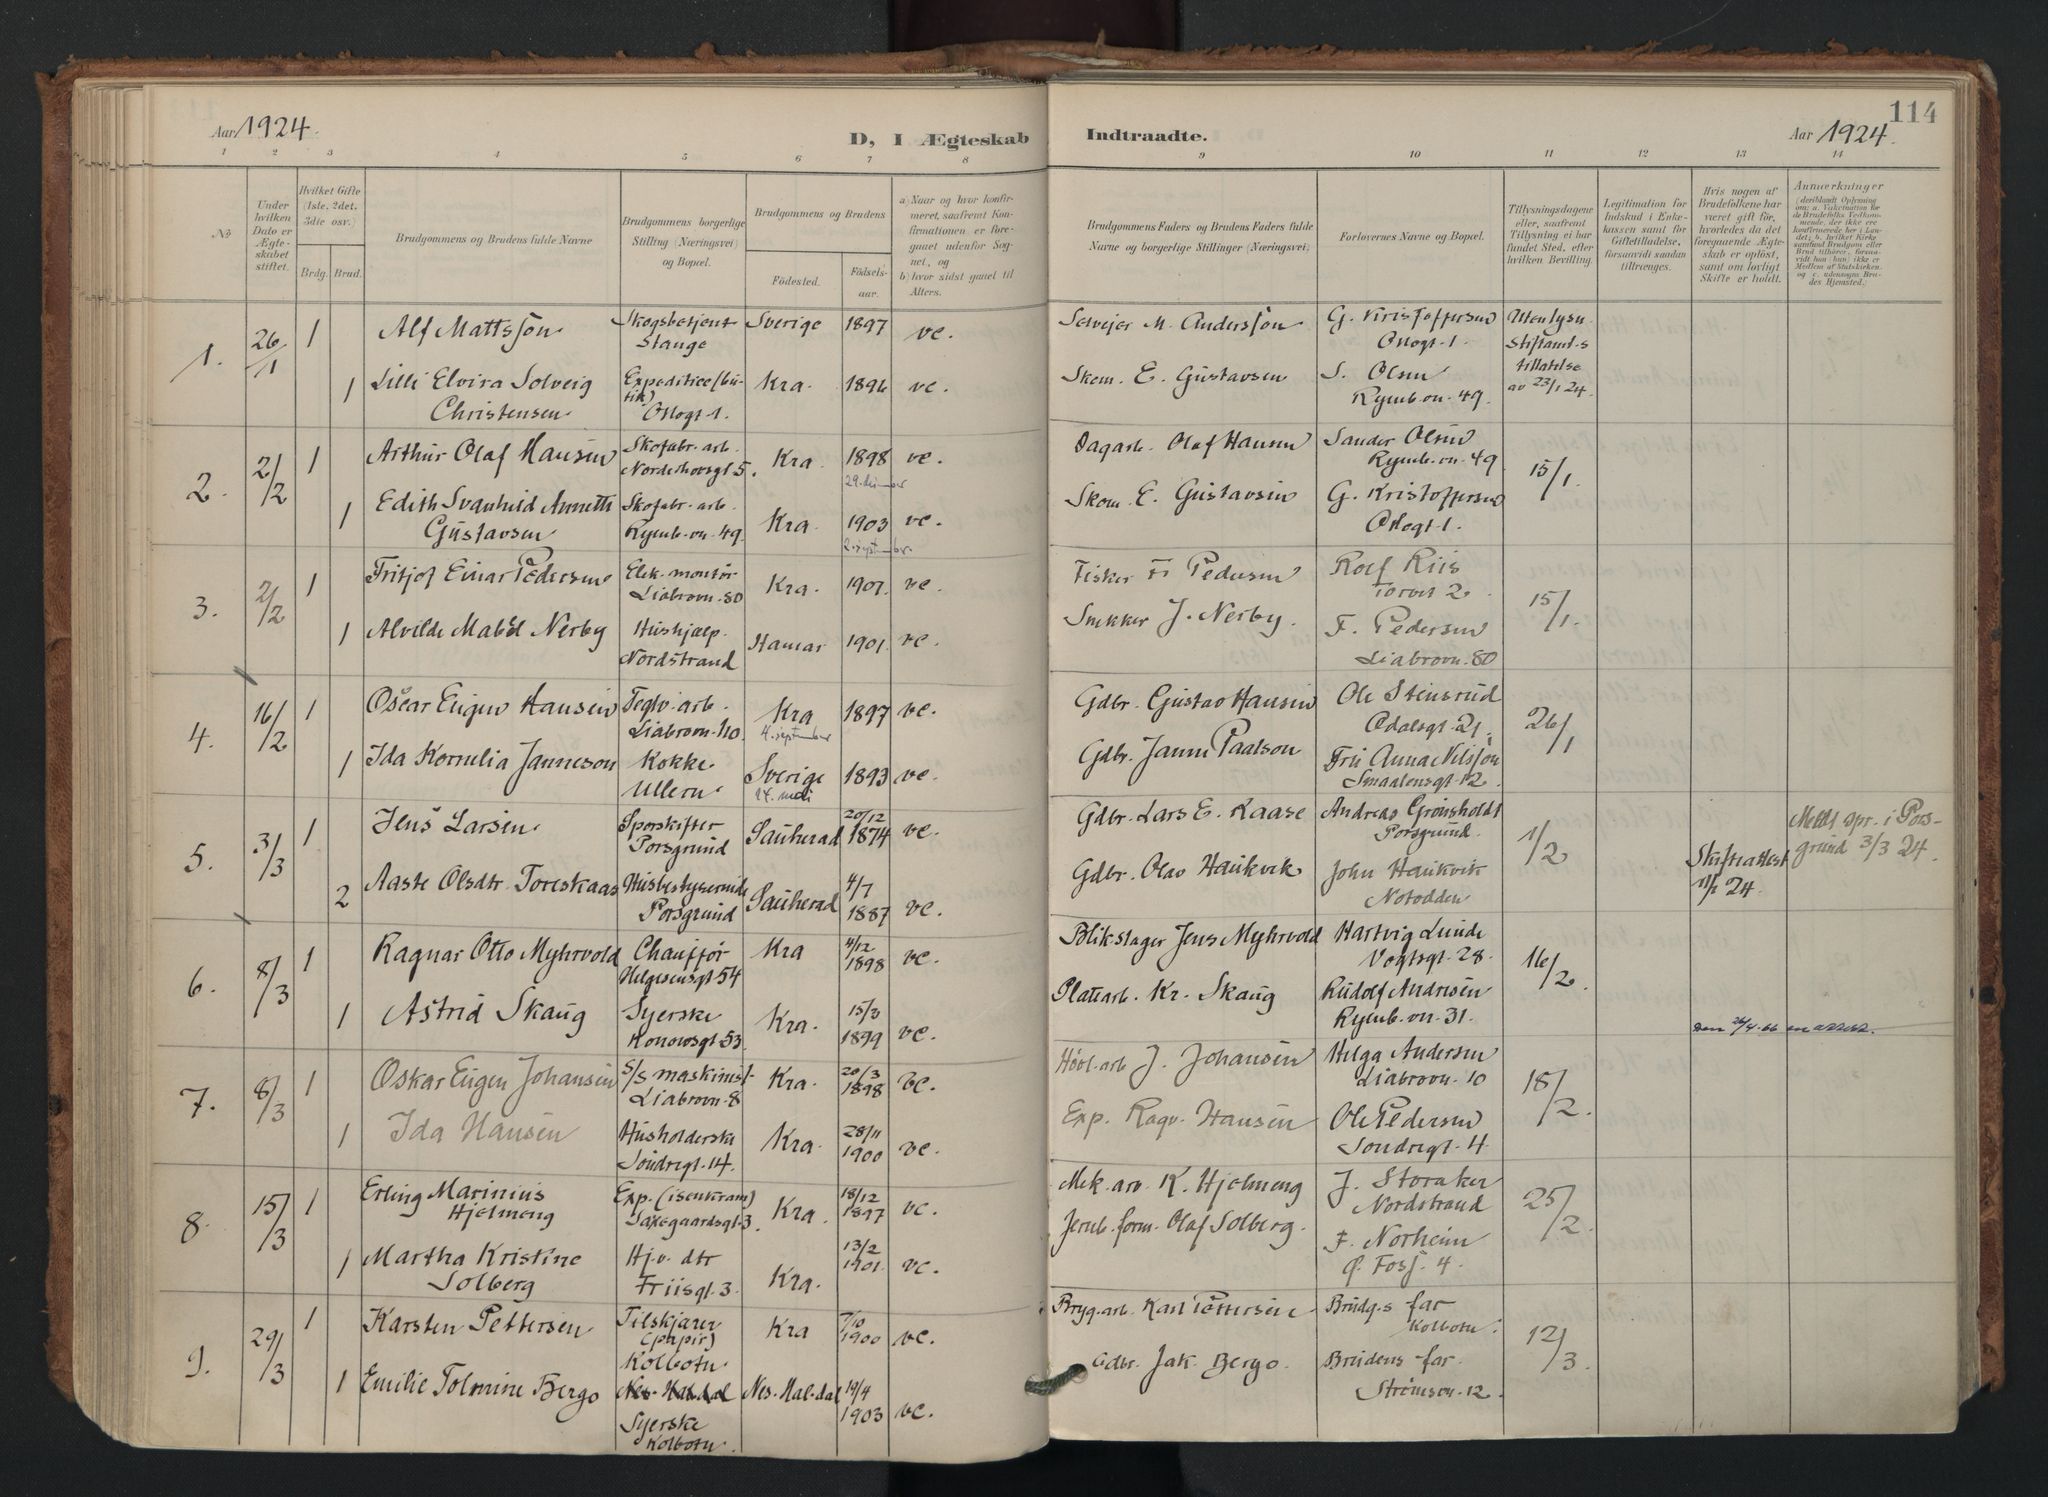 114
Aar 1924.
D, I Ægteskab Indtraadte.
Aar 1924.
1 2 3 4 5 6 7 8 9 10 11 12 13 14
No
Under hvilken Dato er Ægteskabet stiftet.
Hvilket Gifte (1ste, 2det, 3die osv.)
Brdg. Brud.
Brudgommens og Brudens fulde Navne
Brudgommens borgerlige Stilling (Næringsvei) og Bopæl.
Brudgommens og Brudens
Fødested. Fødselsaar.
a) Naar og hvor konfirmeret, saafremt Konfirmationen er foregaaet udenfor Sognet, og
b) hvor sidst gaaet til Alters.
Brudgommens Faders og Brudens Faders fulde Navne og borgerlige Stillinger (Næringsvei).
Forlovernes Navne og Bopæl.
Tillysningsdagene eller, saafremt Tillysning ei har fundet Sted, efter hvilken Bevilling.
Legitimation for Indskud i Enkekassen samt for Giftetilladelse, forsaavidt saadan tiltrænges.
Hvis nogen af Brudefolkene har været gift før, hvorledes da det foregaaende Ægteskab er opløst, samt om lovligt Skifte er holdt.
Anmærkninger
1. 26/1 1 Alf Mattsson Skogbetjent Stange Sverige 1897 ve. Selvejer M. Andersson G. Kristoffersen Oslogt. 1. Uten lysn. Stiftamt.s tillatelse av 23/1 24.
1 Lilli Elvira Solveig Christensen Expeditrice (butik) Oslogt 1. Kra. 1896 ve. Skom. E. Gustavsen S. Olsen Rymb.vn. 49.
2. 2/2 1 Arthur Olaf Hansen Skofabr. arb. Nordehovsgt 5. Kra. 1898 ve. Dagarb. Olaf Hansen Sander Olsen Rymb.vn. 49 15/1.
1 Edith Svanhild Annette Gustavsen Skofabr. arb. Rymb.vn. 49. Kra. 1903 2. september ve. Skom. E. Gustavsen G. Kristoffersen Oslogt. 1.
3. 2/2 1 Fritjof Einar Pedersen Elek. montør Liabrovn. 80 Kra. 1901. ve. Fisker Fr Pedersen Rolf Riis Torvet 2. 15/1.
1 Alvilde Mabel Nerby Hushjælp. Nordstrand Hamar 1901. ve. Snekker J. Nerby. F. Pedersen Liabrovn. 80
4. 16/2 1 Oscar Eugen Hansen Teglv. arb. Liabrovn. 110. Kra 4. september 1897 ve. Gdbr. Gustav Hansen Ole Stensrud Odalsgt. 21. 26/1
1 Ida Kornelia Janneson Kokke Ullern. Sverige 24. mai 1893 ve. Gdbr. Janne Paalson Fru Anna Nilsson Smaalensgt. 12.
5. 3/3 1 Jens Larsen. Sporskifter Porsgrund Sauherad 20/12 1874 ve. Gdbr. Lars E. Kaase Andreas Grønsholdt Porsgrund. 1/2 Medd. spr. i Porsgrund 3/3 24.
2 Aaste Olsdtr. Toreskaas Husbestyrerinde Porsgrund Sauherad 4/7 1887 ve. Gdbr. Olav Haukvik John Haukvik Notodden Skifteattest 24.
6. 8/3 1 Ragnar Otto Myhrvold Chauffør Helgesensgt 54 Kra 4/12 1898 ve. Blikslager Jens Myhrvold Hartvig Lunde Vogtsgt. 28. 16/2
1 Astrid Skaug Syerske Konowsgt 53. Kra. 15/3 1899 ve. Platearb. Kr. Skaug Rudolf Andresen Rymb.vn. 31.
7. 8/3 1 Oskar Eugen Johansen S/S maskinist Liabrovn. 8 Kra. 20/3 1898 ve. Høvl. arb J. Johansen Helga Andersen Liabrovn. 10 18/2.
1 Ida Hansen Husholderske Søndregt. 14. Kra. 28/11 1900 ve. Exp. Ragv. Hansen Ole Pedersen Søndregt. 4
8. 15/3 1 Erling Marinius Hjelmeng Exp. (isenkram) Saxegaardsgt. 3. Kra. 18/12 1897 ve. Mek. arb. K. Hjelmeng J. Storaker Nordstrand 25/2.
1 Martha Kristine Solberg Hj.v. dtr Friisgt. 3. Kra. 13/2 1901. ve. Jernb. form. Olaf Solberg. F. Norheim 4.
9. 29/3 1 Karsten Pettersen Tilskjærer (papir) Kolbotn Kra 7/10 1900 ve. Bryg. arb. Karl Pettersen Brudg.s far Kolbotn. 12/3.
1 Emilie Tolmine Bergo Nes Haldal Syerske Kolbotn. Nes. Hal.dal 19/4 1903 ve. Gdbr. Jak. Bergo. Brudens far. Strømsvn. 12.